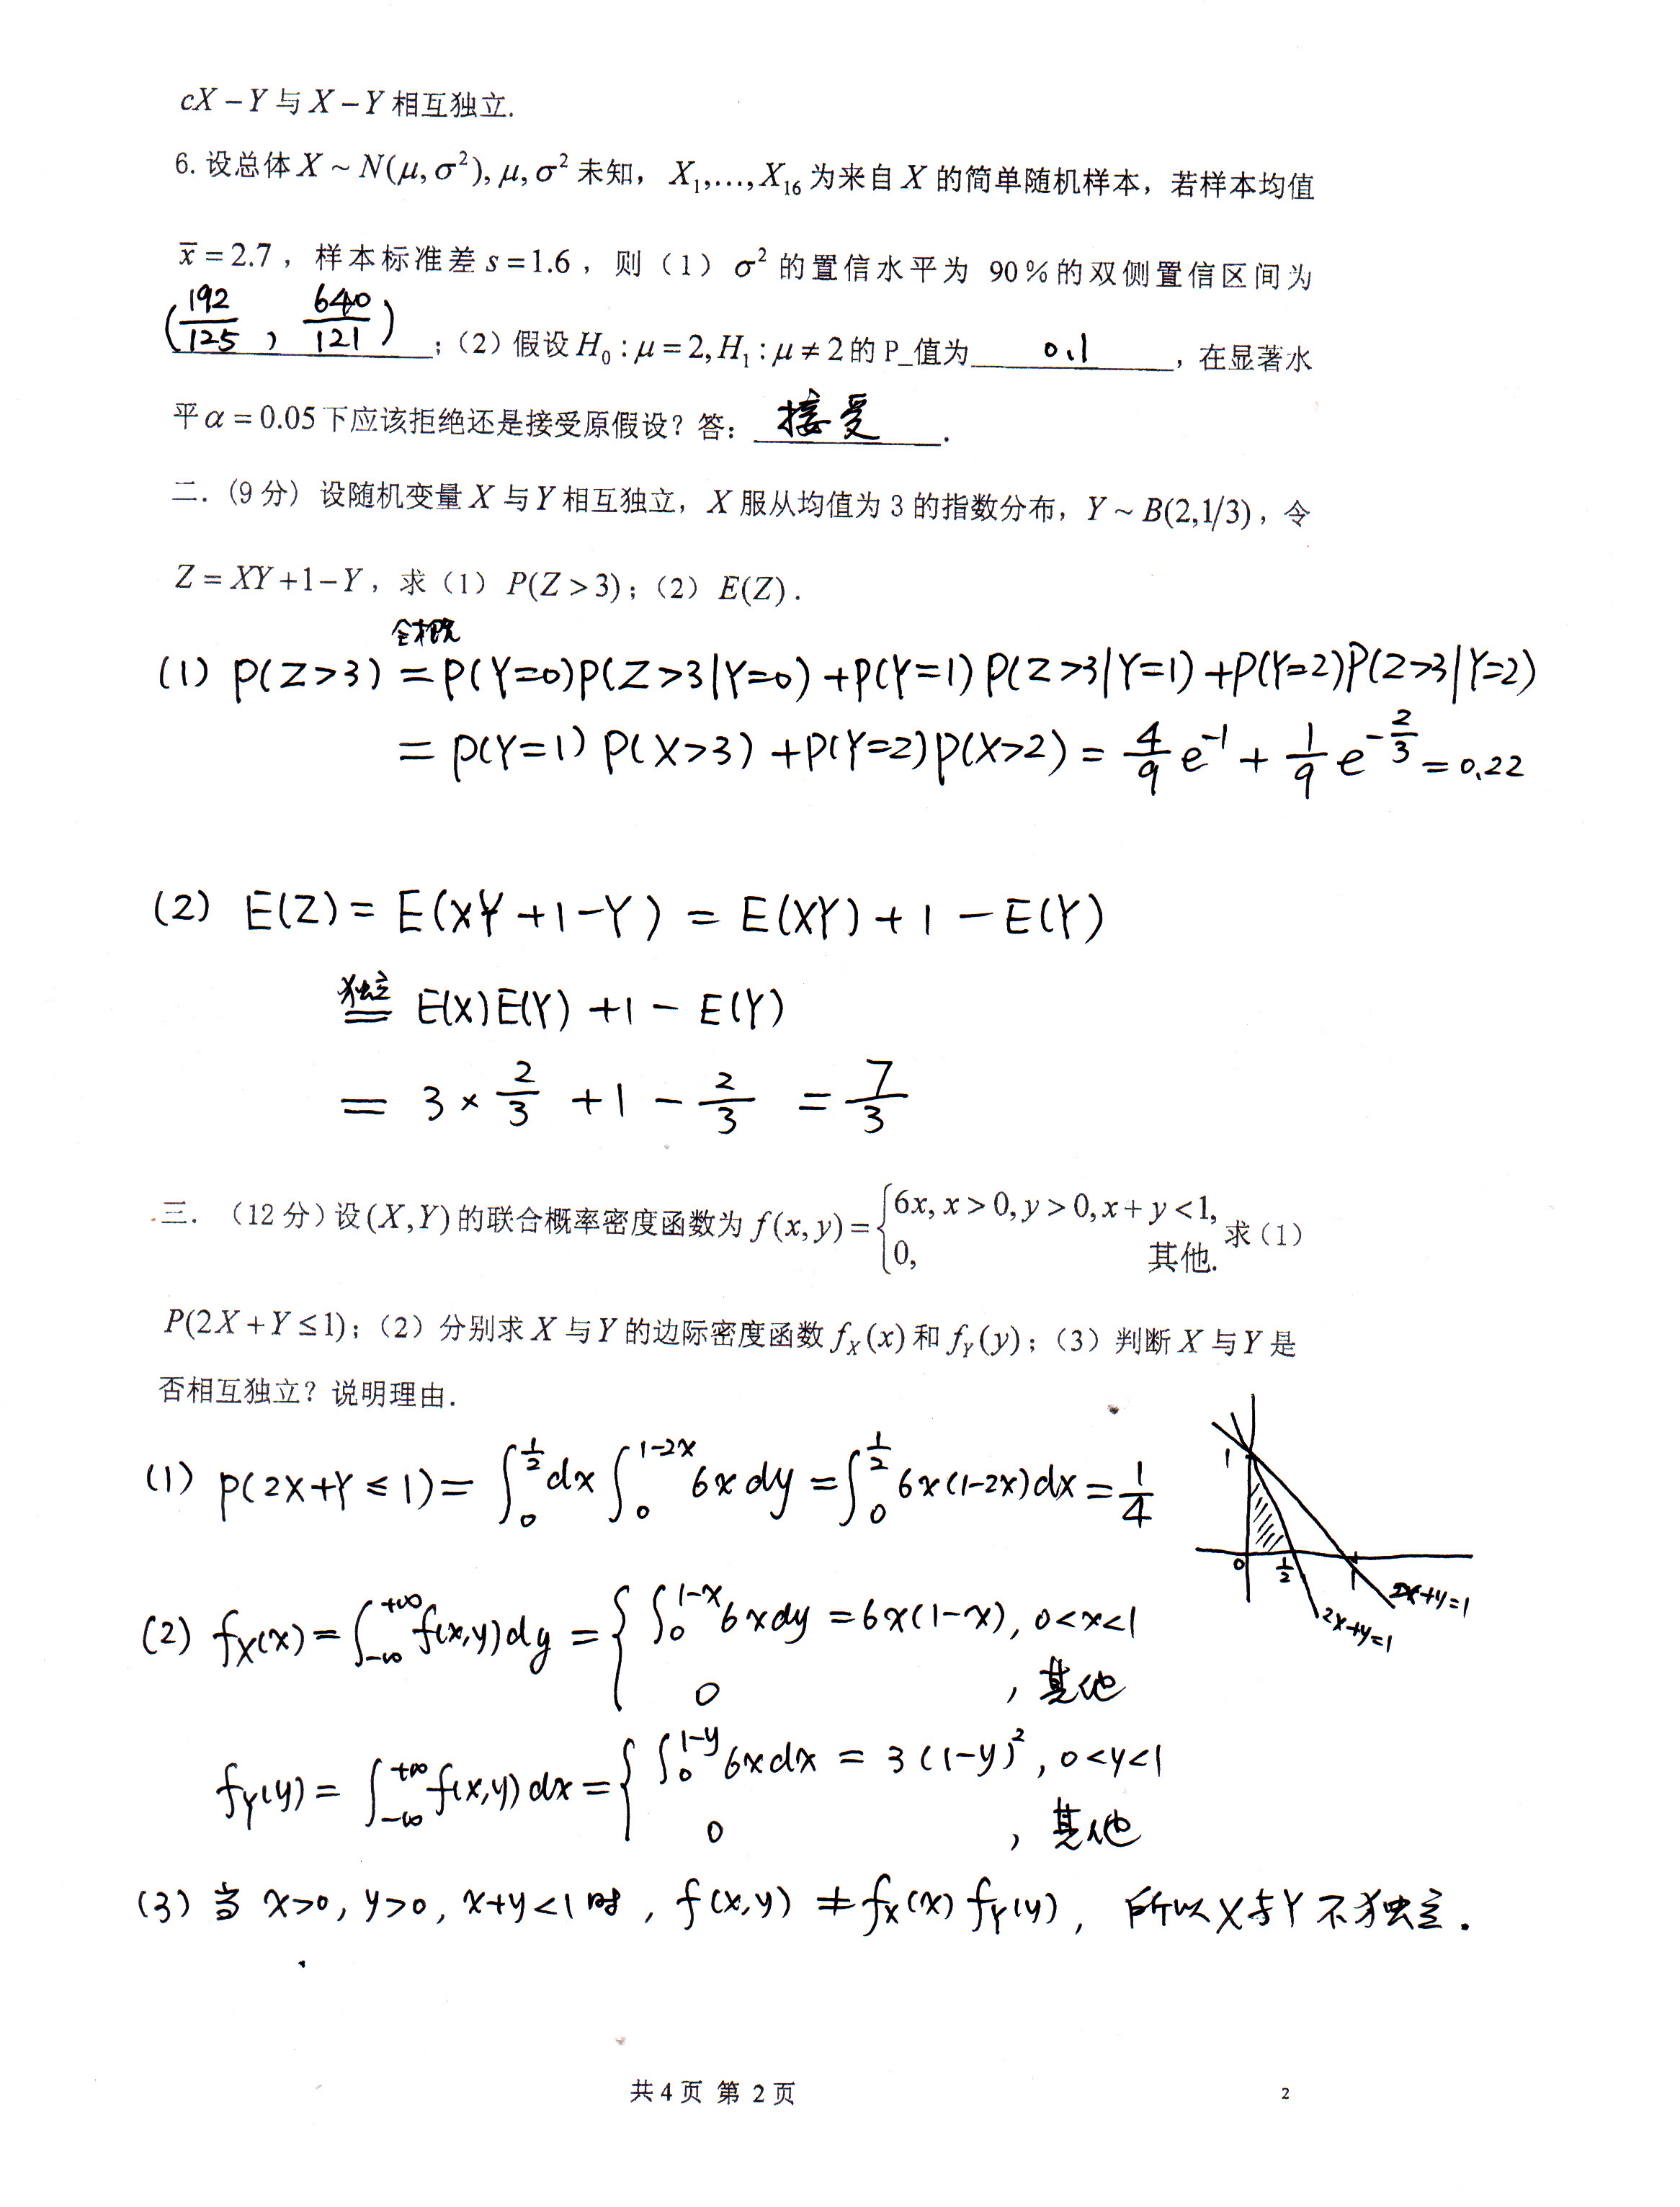 cX－Y与X－Y相互独立.
6. 设总体X ~ N(μ, σ²), μ, σ² 未知， X₁,…, X₁₆ 为来自 X 的简单随机样本，若样本均值
x̄ = 2.7 ，样本标准差 s = 1.6 ，则（1）σ² 的置信水平为 90％的双侧置信区间为
(192/125 , 640/121) ；（2）假设 H₀ : μ = 2, H₁ : μ ≠ 2 的 P_值为 0.1 ，在显著水
平 α = 0.05 下应该拒绝还是接受原假设？答： 接受 .
二．(9 分) 设随机变量 X 与 Y 相互独立， X 服从均值为 3 的指数分布， Y ~ B(2,1/3) ，令
Z = XY +1－Y ，求（1）P(Z > 3) ；（2）E(Z) .
全概
(1) P(Z>3) = P(Y=0)P(Z>3|Y=0) + P(Y=1) P(Z>3|Y=1) + P(Y=2)P(Z>3|Y=2)
= P(Y=1) P(X>3) + P(Y=2)P(X>2) = 4/9 e⁻¹ + 1/9 e^(-2/3) = 0.22
(2) E(Z) = E(XY +1－Y) = E(XY) + 1 － E(Y)
独立
= E(X)E(Y) +1 － E(Y)
= 3 × 2/3 + 1 － 2/3 = 7/3
三．（12 分）设 (X,Y) 的联合概率密度函数为 f(x,y) = { 6x, x > 0, y > 0, x + y < 1, 求（1）
0, 其他.
P(2X + Y ≤ 1) ；（2）分别求 X 与 Y 的边际密度函数 f_X(x) 和 f_Y(y) ；（3）判断 X 与 Y 是
否相互独立？说明理由.
(1) P(2X+Y ≤ 1) = ∫₀^(1/2) dx ∫₀^(1-2x) 6x dy = ∫₀^(1/2) 6x(1-2x)dx = 1/4
1
0 1/2 1
x+y=1
2x+y=1
(2) f_X(x) = ∫_{-∞}^{+∞} f(x,y)dy = { ∫₀^(1-x) 6xdy = 6x(1-x), 0<x<1
0 , 其他
f_Y(y) = ∫_{-∞}^{+∞} f(x,y)dx = { ∫₀^(1-y) 6xdx = 3(1-y)², 0<y<1
0 , 其他
(3) 当 x>0, y>0, x+y<1 时, f(x,y) ≠ f_X(x) f_Y(y), 所以 X与Y 不独立.
共 4 页 第 2 页
2